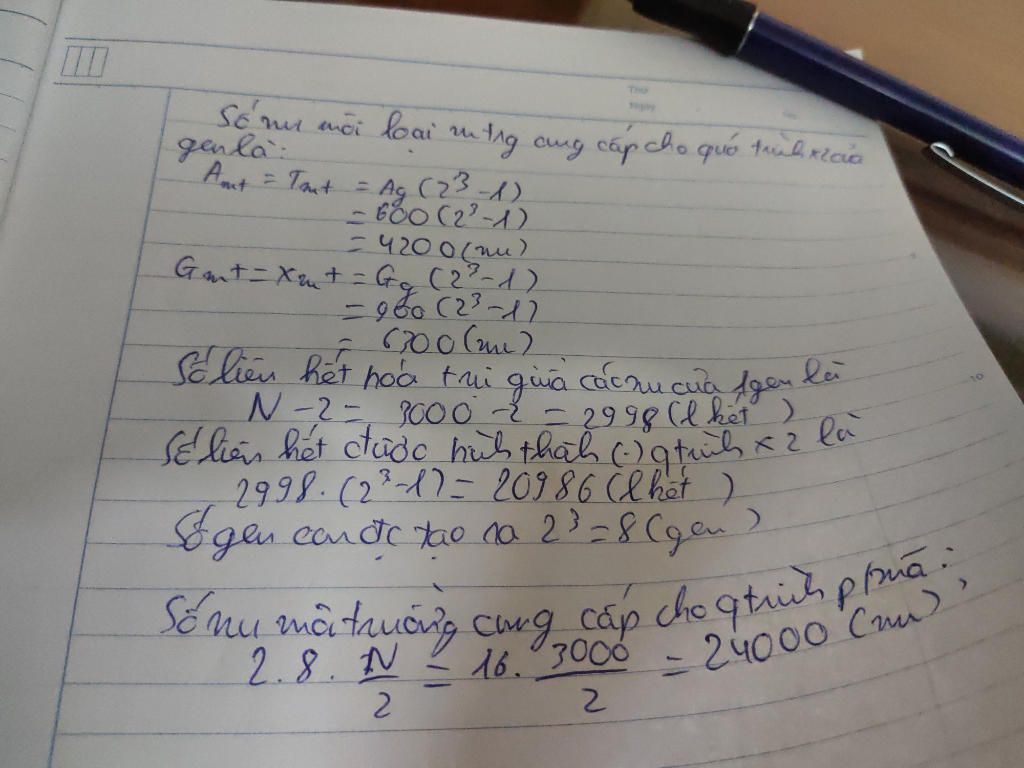 Thứ
Ngày
Số nu mỗi loại mtrg cung cấp cho quá trình x2 của
gen là:
Amt = Tmt = Ag (2³-1)
= 600 (2³-1)
= 4200 (nu)
Gmt = Xmt = Gg (2³-1)
= 900 (2³-1)
= 6300 (nu)
Số liên kết hoá trị giữa các nu của 1 gen là
N - 2 = 3000 - 2 = 2998 (l kết)
Số liên kết được hình thành (.) qtrình x2 là
2998 . (2³-1) = 20986 (l kết)
Số gen con đc tạo ra 2³ = 8 (gen)
Số nu môi trường cung cấp cho qtrình p/mã:
2.8. N/2 = 16. 3000/2 = 24000 (nu)